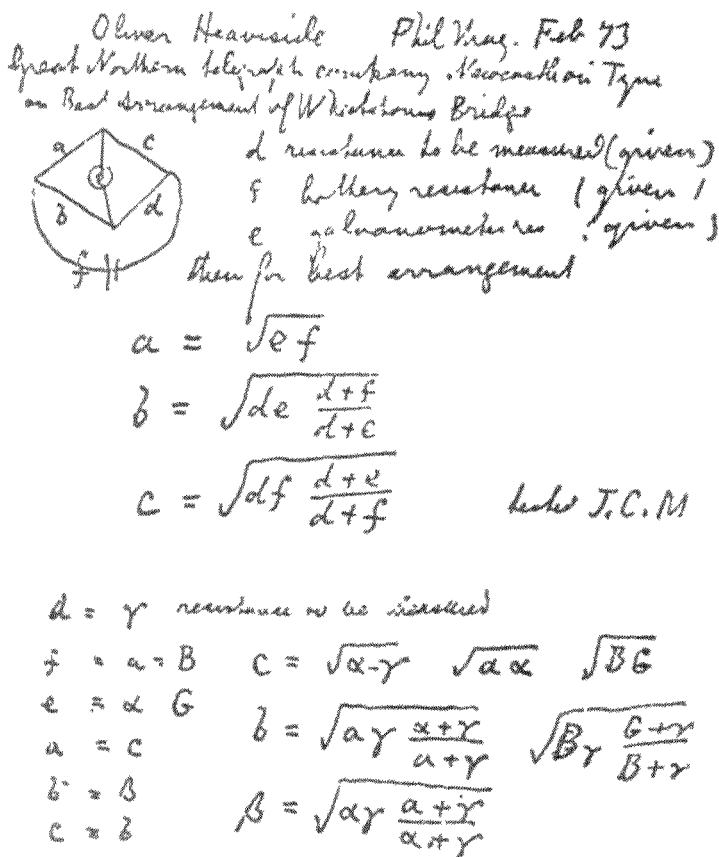 Oliver Heaviside Phil Mag. Feb 73
Great Northern telegraph company Newcastle on Tyne
on Best Arrangement of Wheatstones Bridge
a c
e
b d
f
d resistance to be measured (given)
f battery resistance (given)
e galvanometer res (given)
then for best arrangement
a = √ef
b = √de (d+f)/(d+e)
c = √df (d+e)/(d+f)
tested J.C.M
d = γ resistance to be measured
f = a = B c = √α-γ √aα √BG
e = α G
a = c b = √aγ (α+γ)/(a+γ) √Bγ (G+γ)/(B+γ)
b = β
c = b β = √αγ (a+γ)/(α+γ)